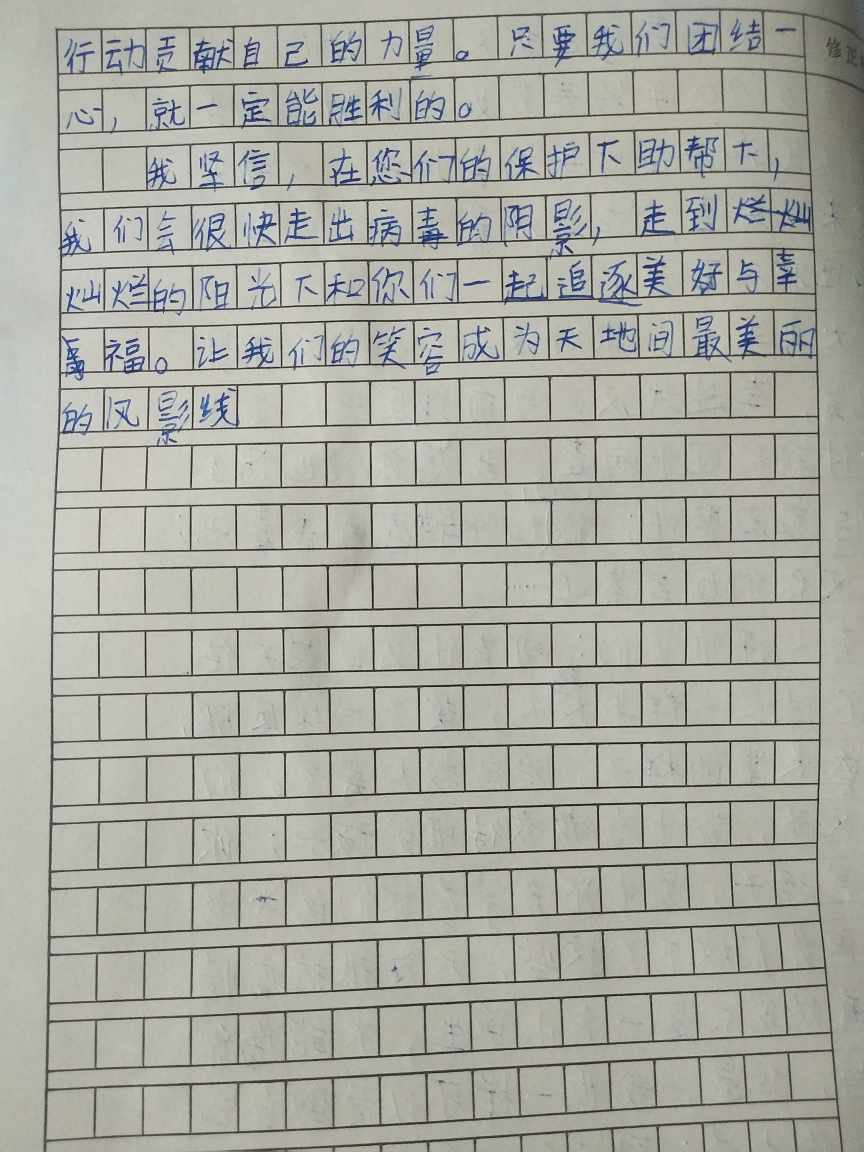 行动贡献自己的力量。只要我们团结一
心，就一定能胜利的。
我坚信，在您们的保护下助帮下，
我们会很快走出病毒的阴影，走到烂灿
灿烂的阳光下和你们一起追逐美好与幸
福。让我们的笑容成为天地间最美丽
的风影线